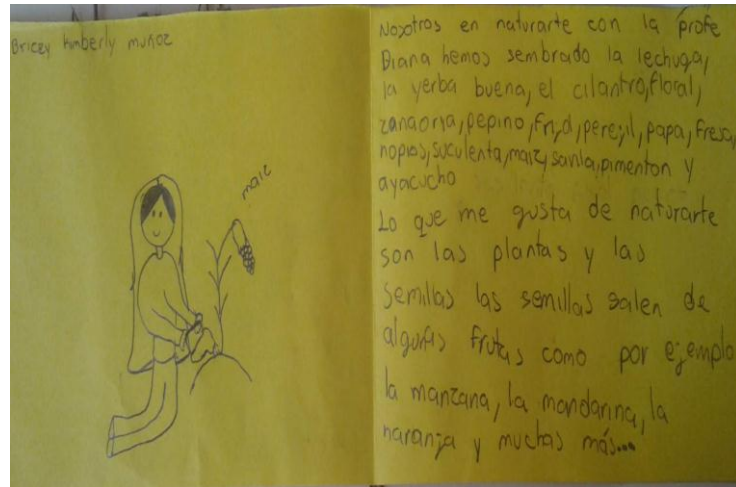 Bricey kimberly muñoz
maiz
Nosotros en naturarte con la profe
Diana hemos sembrado la lechuga,
la yerba buena, el cilantro, floral,
zanaoria, pepino, frijol, perejil, papa, fresa,
nopios, suculenta, maiz, pimenton y
ayacucho
Lo que me gusta de naturarte
son las plantas y las
semillas las semillas salen de
algunas frutas como por ejemplo
la manzana, la mandarina, la
naranja y muchas más...